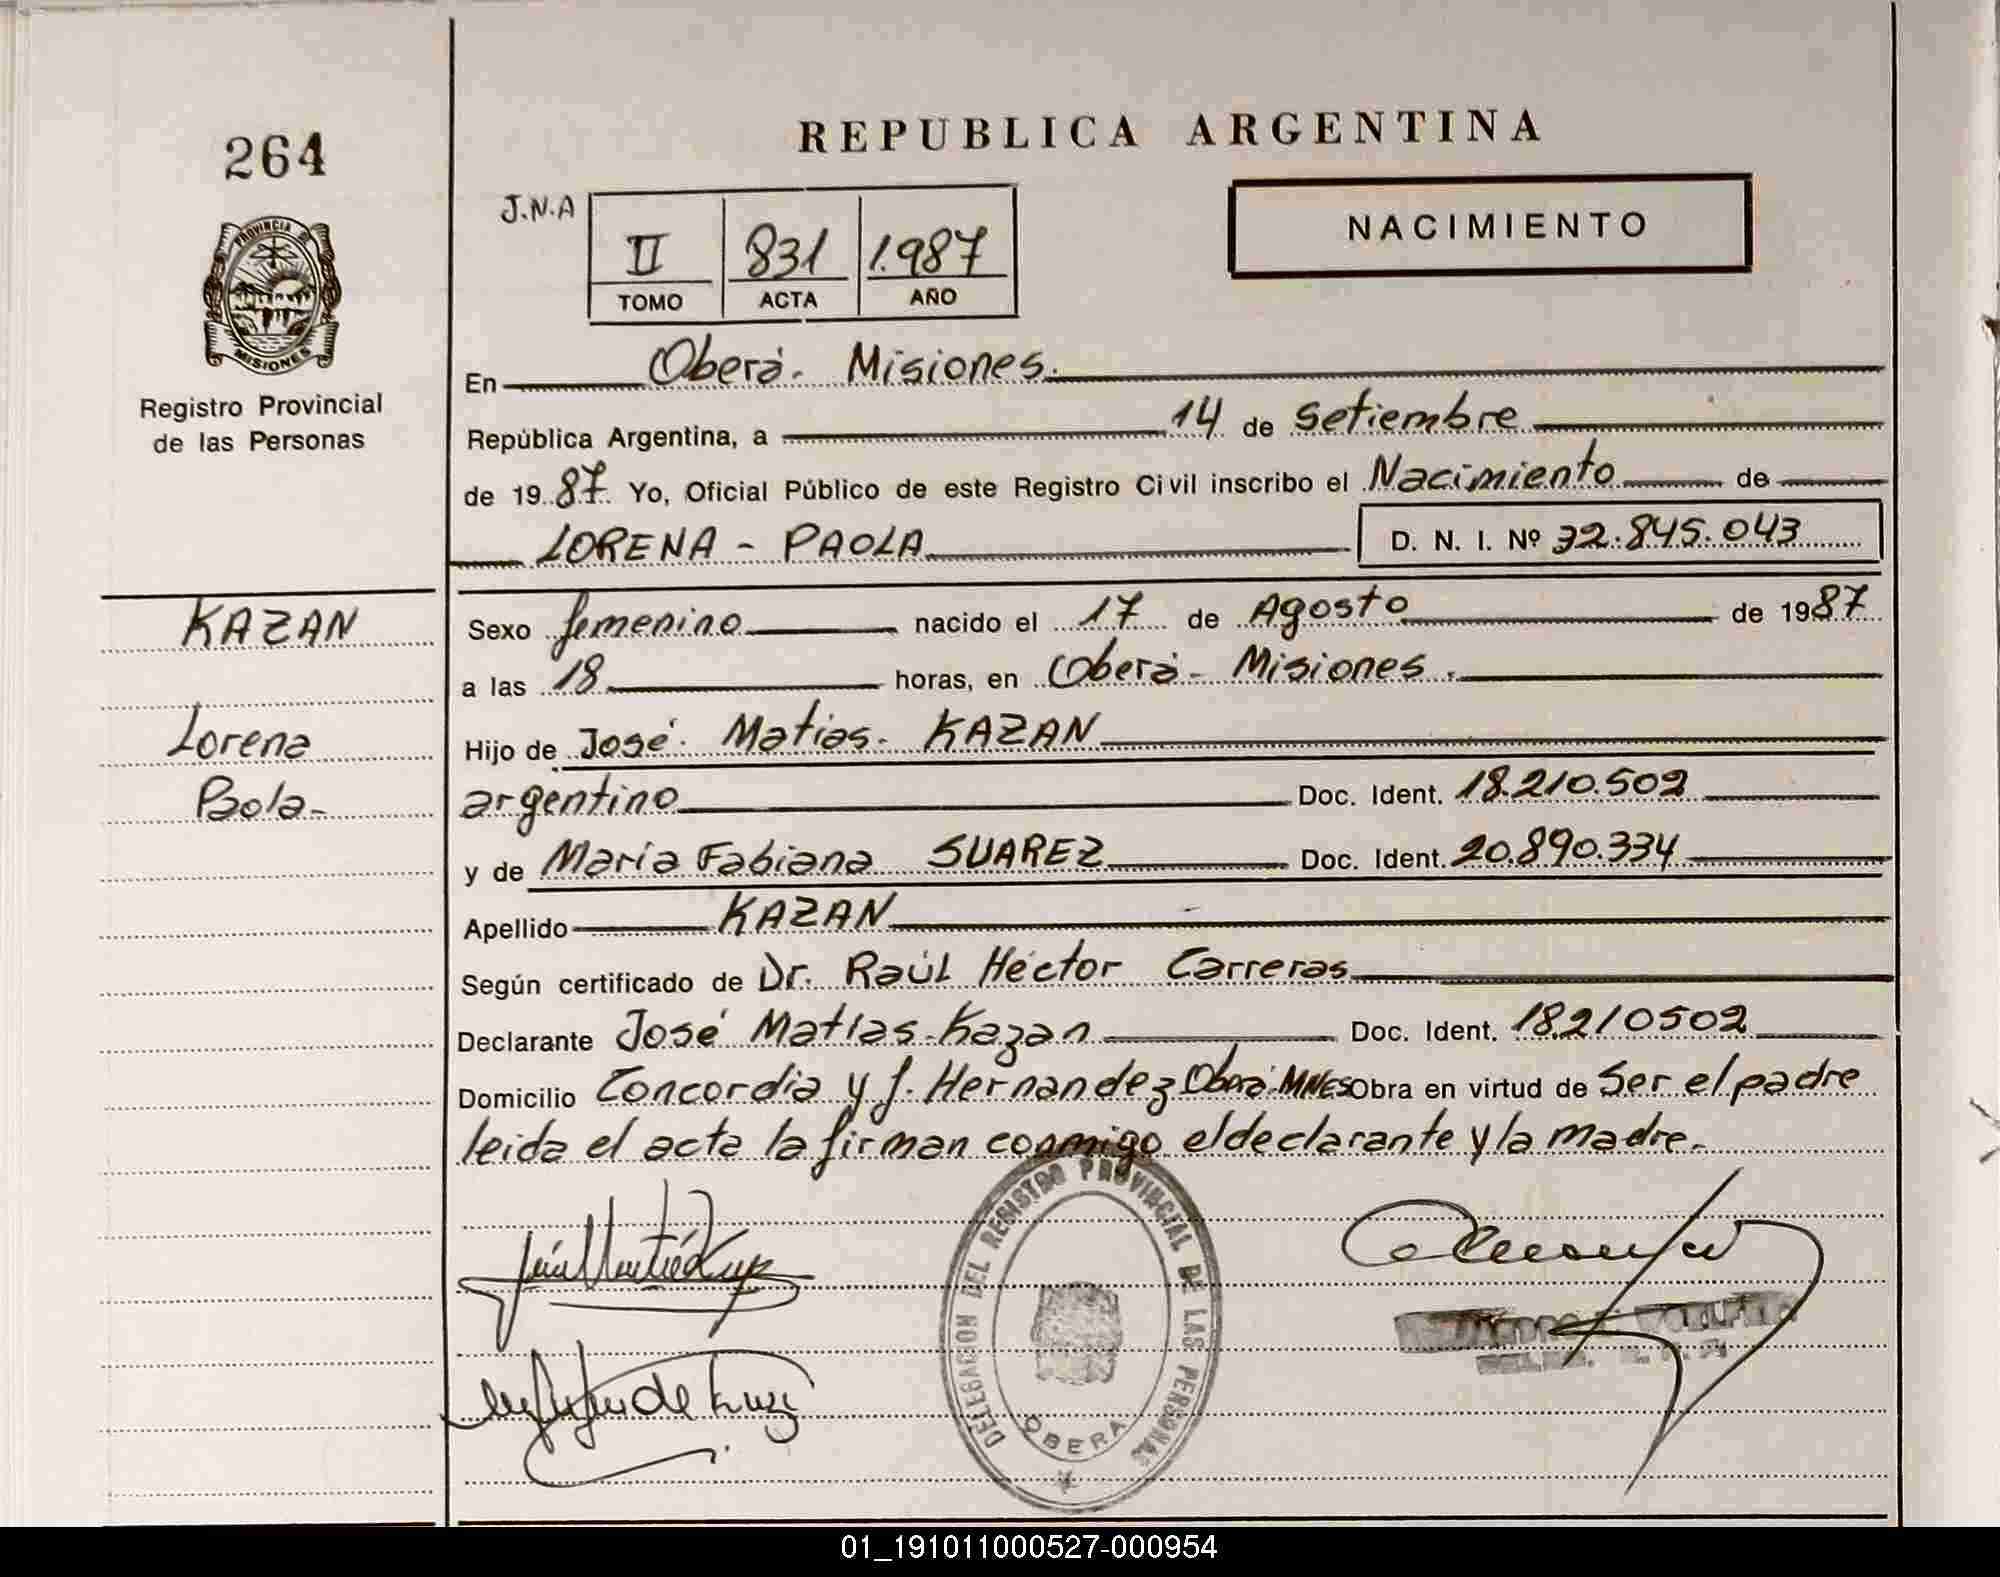 264
PROVINCIA D
MISIONES
Registro Provincial
de las Personas
KAZAN
Lorena
Paola-
REPUBLICA ARGENTINA
J.N.A
II 831 1.987
TOMO ACTA AÑO
NACIMIENTO
En Oberá- Misiones.
República Argentina, a 14 de setiembre
de 1987. Yo, Oficial Público de este Registro Civil inscribo el Nacimiento de
LORENA - PAOLA D. N. I. Nº 32.845.043
Sexo femenino nacido el 17 de Agosto de 1987
a las 18 horas, en Oberá- Misiones.
Hijo de José Matias- KAZAN
argentino Doc. Ident. 18.210.502
y de María Fabiana SUAREZ Doc. Ident. 20.890.334
Apellido KAZAN
Según certificado de Dr. Raúl Héctor Carreras
Declarante José Matías-Kazan Doc. Ident. 18210502
Domicilio Concordia y J. Hernandez Oberá-MNES Obra en virtud de Ser el padre
leida el acta la firman conmigo el declarante y la madre.
DELEGACION DEL REGISTRO PROVINCIAL DE LAS PERSONAS
OBERA
01_191011000527-000954